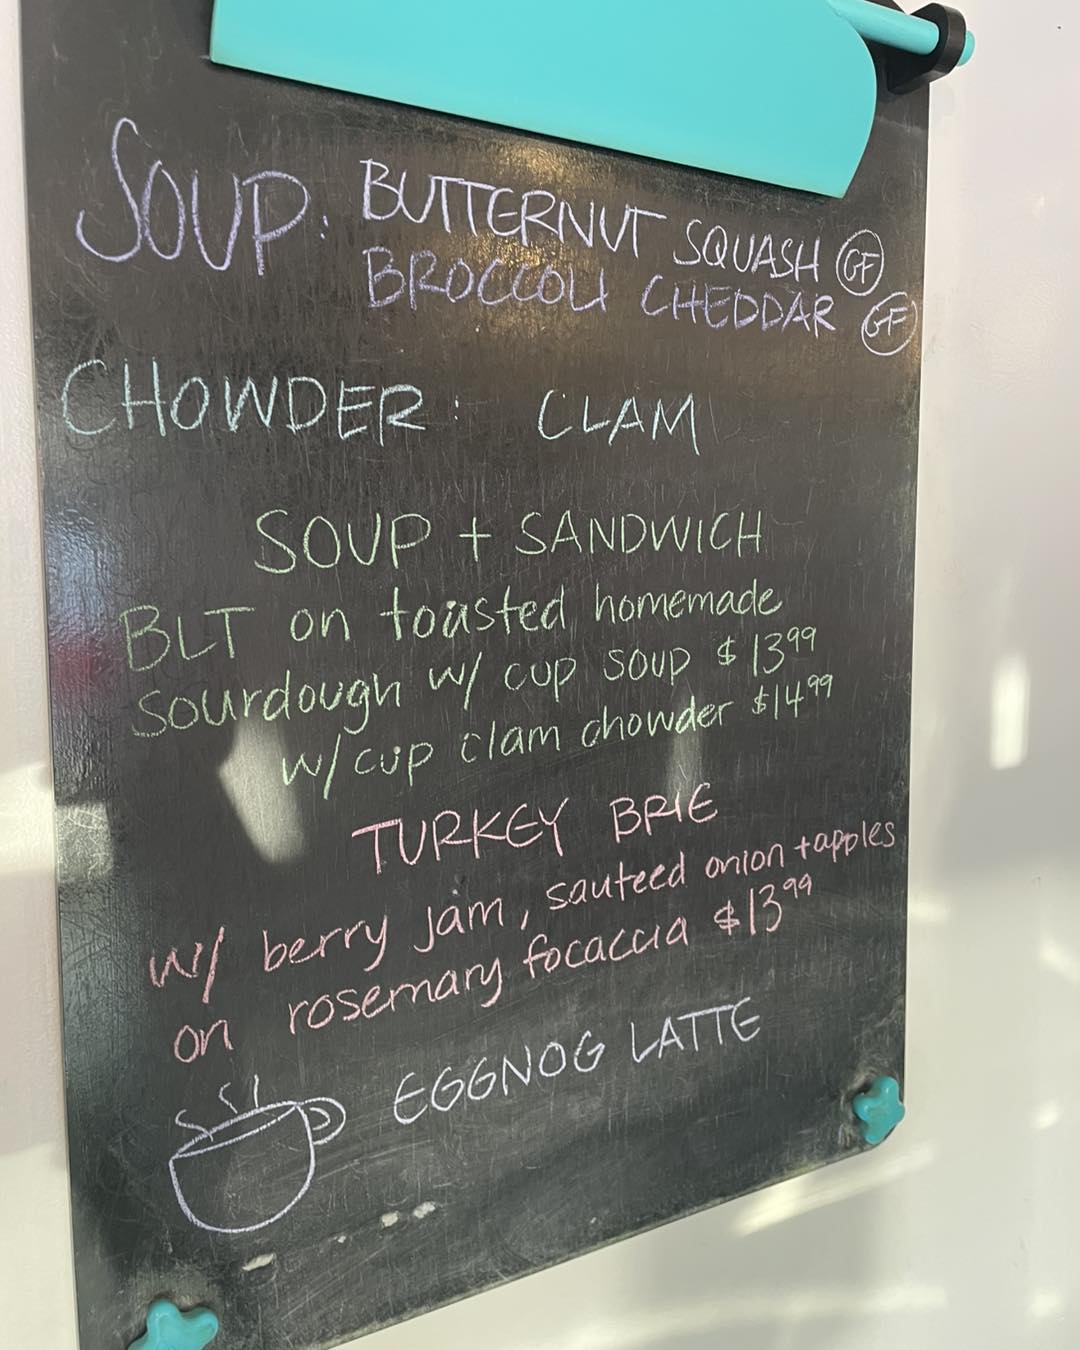 SOUP: BUTTERNUT SQUASH GF
BROCCOLI CHEDDAR GF
CHOWDER: CLAM
SOUP + SANDWICH
BLT on toasted homemade
sourdough w/ cup soup $13.99
w/ cup clam chowder $14.99
TURKEY BRIE
w/ berry jam, sauteed onion + apples
on rosemary focaccia $13.99
EGGNOG LATTE